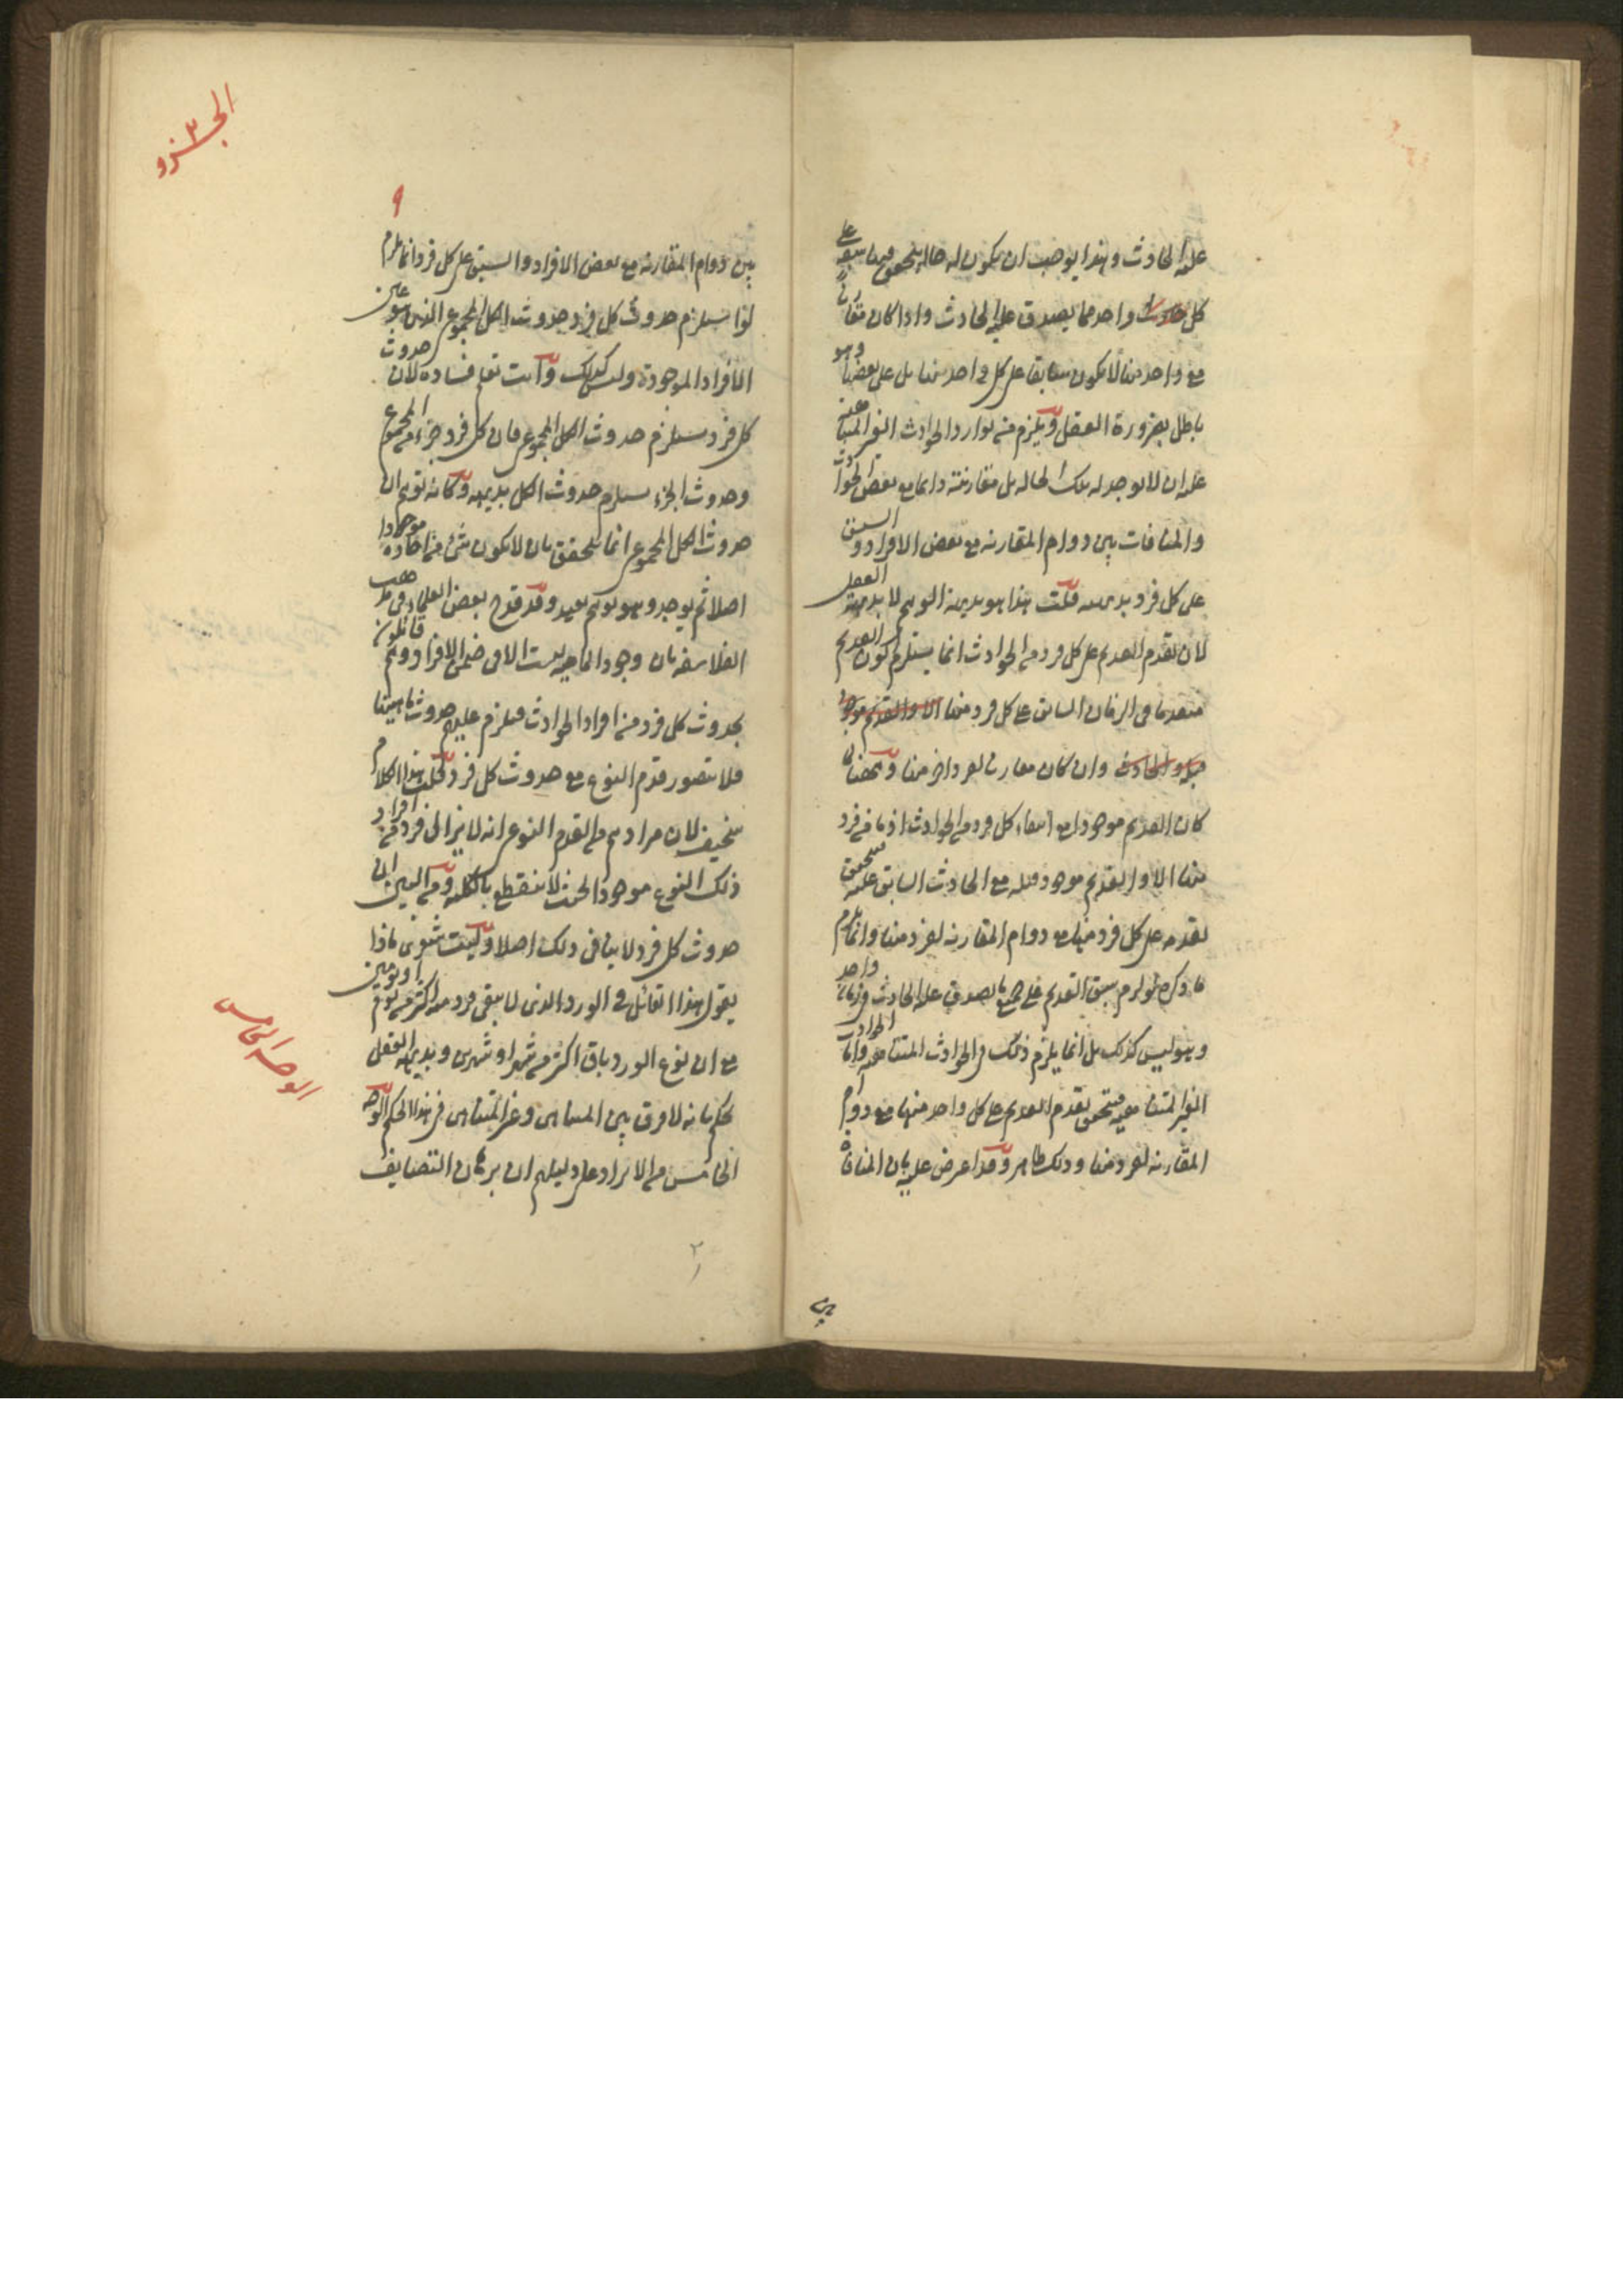 عليه الحادث وهذا يوجب ان يكون له حالة يتحقق فيها سبقه على
كل واحد مما يصدق عليه الحادث واذا كان مقارنا
مع واحد منها لا يكون سابقا على كل واحد منها بل على بعضها وهو
باطل بضرورة العقل ويلزم منه توارد الحوادث الغير المتناهية
عليه ان لا يوجد له تلك الحالة بل مقارنته دائما مع بعض الحوادث
والمنافات بين دوام المقارنة مع بعض الافراد والسبق
على كل فرد بديهية قلت هذا هو بديهة الوهم لا بديهة العقل
لان تقدم القديم على كل فرد من الحوادث انما يستلزم كون القديم
متقدما في الزمان السابق على كل فرد منها الا والقديم موجود
قبله والحادث وان كان مقارنا لفرد اخر منها
كان القديم موجودا مع انتفاء كل فرد من الحوادث اذ ما من فرد
منها الا والقديم موجود قبله مع الحادث السابق عليه فيتحقق
تقدمه على كل فرد منها مع دوام المقارنة لفرد منها وانما يلزم
ما ذكره لو لزم سبق القديم على جميع ما يصدق عليه الحادث في زمان واحد
وهو ليس كذلك بل انما يلزم ذلك في الحوادث المتناهية واما الحوادث
الغير المتناهية فيتحقق تقدم القديم على كل واحد منها مع دوام
المقارنة لفرد منها وذلك ظاهر وقد اعرض عليه بان المنافاة
بين
الجزو ٢
٩
بين دوام المقارنة مع بعض الافراد والسبق على كل فرد انما يلزم
لو استلزم حدوث كل فرد حدوث الكل المجموع الذي هو عين
الافراد الموجودة وليس كذلك وانت تعلم فساده لان حدوث
كل فرد يستلزم حدوث الكل المجموع فان كل فرد جزء من المجموع
وحدوث الجزء يستلزم حدوث الكل بديهة وكانه توهم ان
حدوث الكل المجموع انما يتحقق بان لا يكون شئ من احاده موجودا
اصلا ثم يوجد وهو توهم بعيد وقد قدح بعض العلماء في مذهب
الفلاسفة بان وجود الماهية ليست الا في ضمن الافراد وهم قائلون
بحدوث كل فرد من افراد الحوادث فيلزم عليهم حدوث ماهيتها
فلا يتصور قدم النوع مع حدوث كل فرد قلت هذا الكلام
سخيف لان مرادهم من القدم النوع انه لا يزال فرد من افراد
ذلك النوع موجودا بحيث لا ينقطع بالكلية ومن البين ان
حدوث كل فرد لا ينافي ذلك اصلا وليت شعري ماذا
يقول هذا القائل في الورد الذي لا يبقى فرد منه اكثر من يوم او يومين
مع ان نوع الورد باق اكثر من شهر او شهرين وبديهة العقل
تحكم بانه لا فرق بين المتناهي وغير المتناهي في هذا الحكم الوجه
الخامس من الايراد على دليلهم ان برهان التضايف
الوجه الخامس
٢